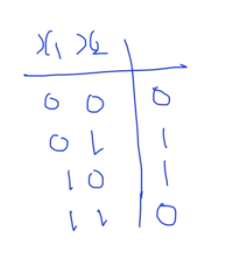 x₁ x₂
0 0 0
0 1 1
1 0 1
1 1 0